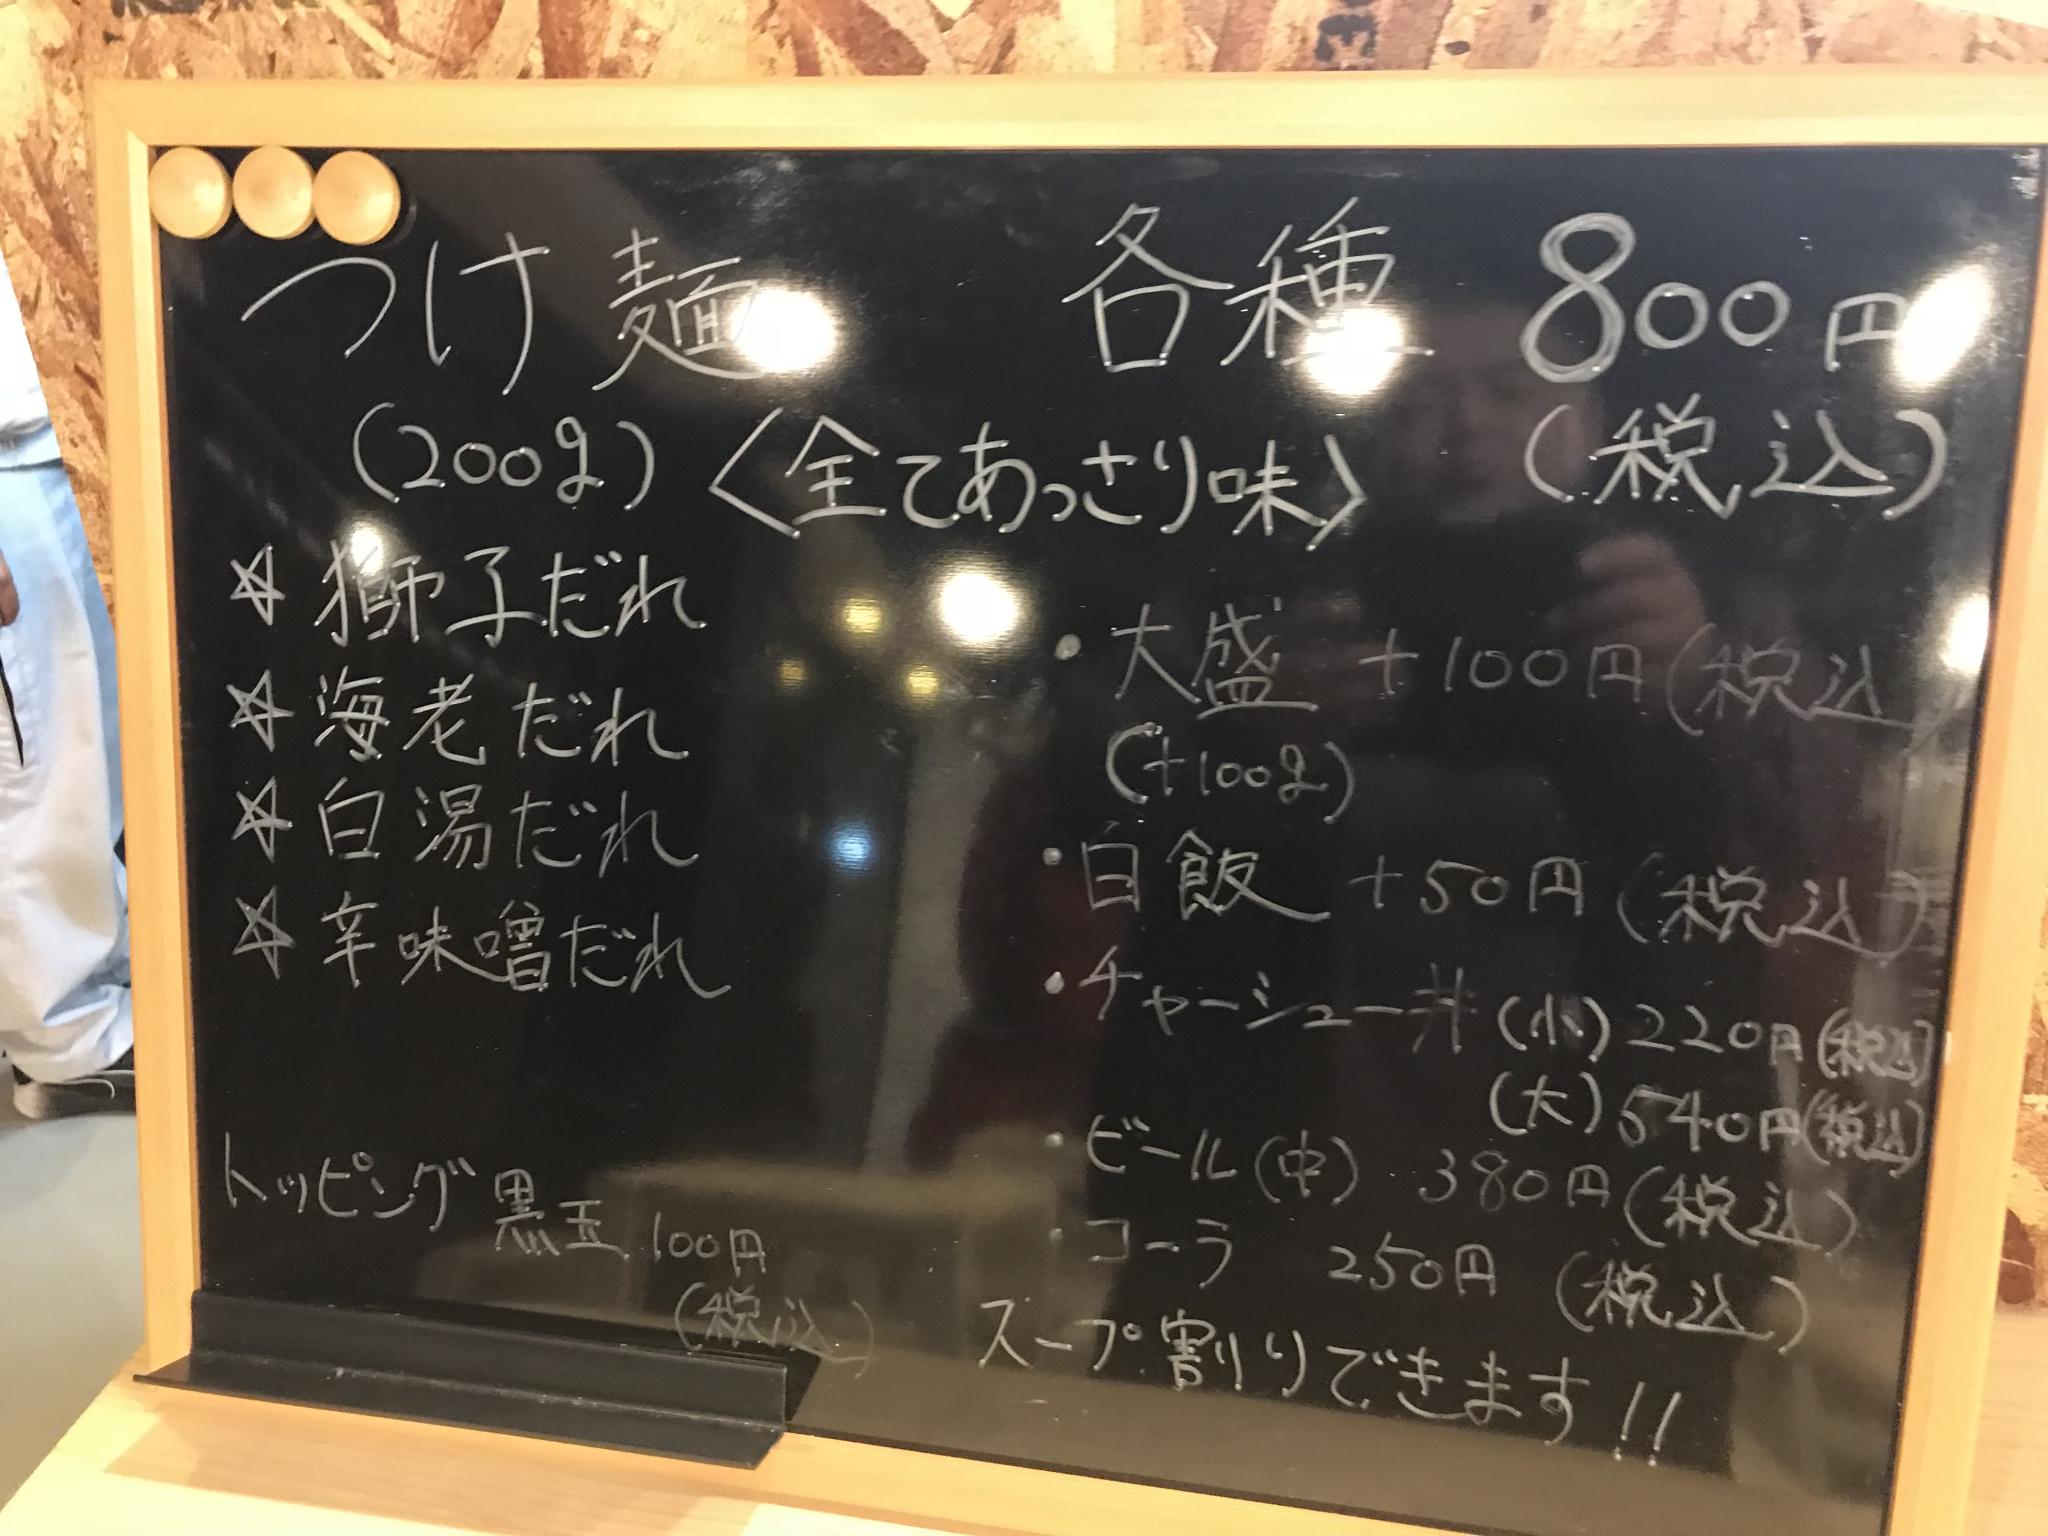 つけ麺 各種 800円
(200g) 〈全てあっさり味〉 (税込)
☆ 獅子だれ
☆ 海老だれ
☆ 白湯だれ
☆ 辛味噌だれ
トッピング 黒玉 100円
(税込)
・大盛 +100円(税込)
(+100g)
・白飯 +50円(税込)
・チャーシュー丼 (小) 220円(税込)
(大) 540円(税込)
・ビール(中) 380円(税込)
・コーラ 250円(税込)
スープ割りできます!!